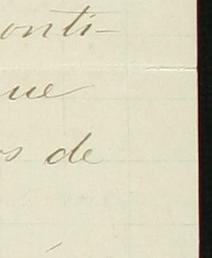 onti-
ue
s de